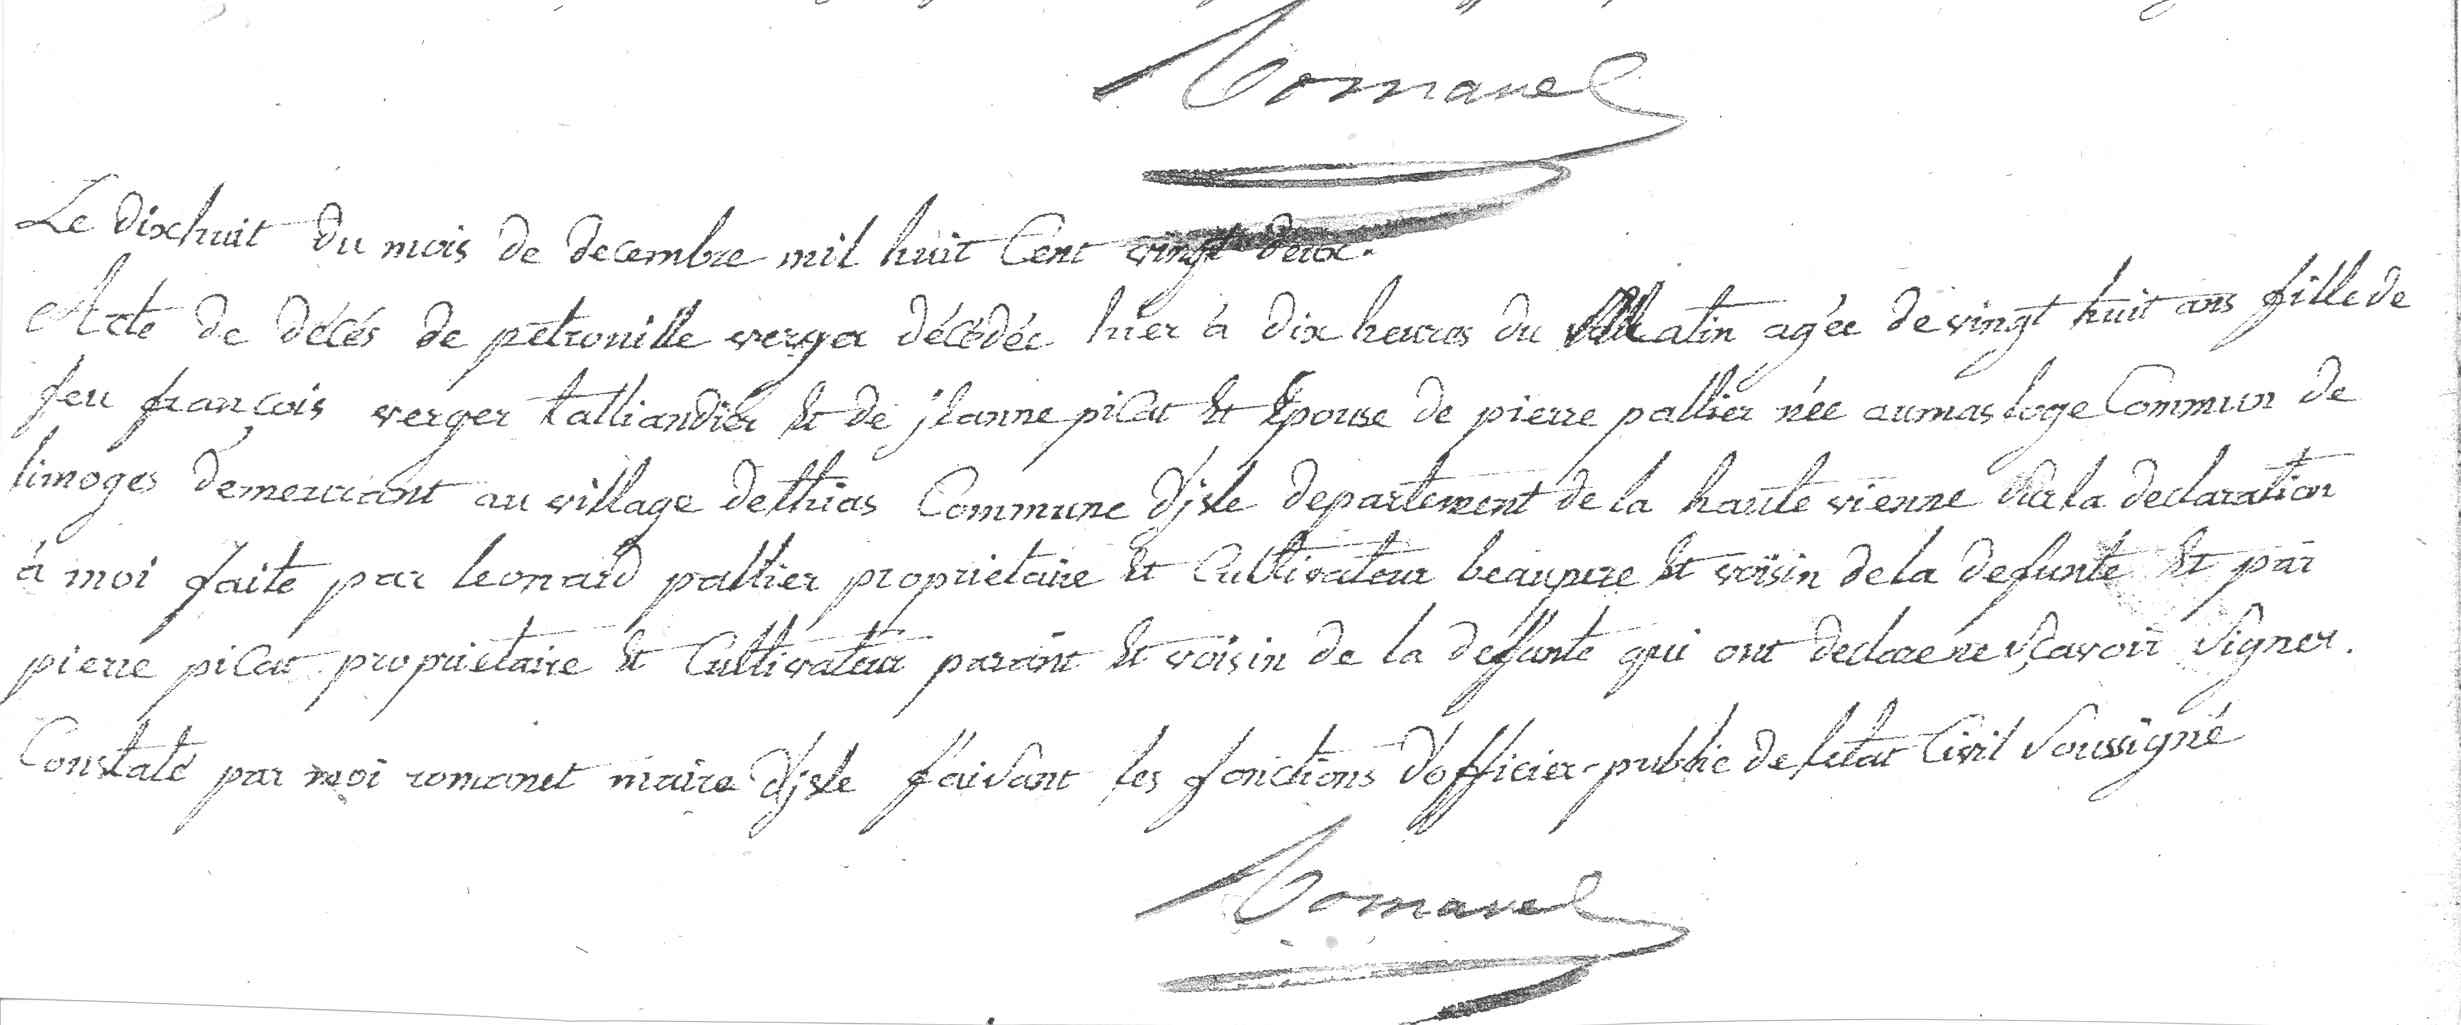 Romanet
Le dixhuit du mois de decembre mil huit Cent vingt deux.
Acte de décés de petronille verger décédée hier à dix heures du Matin agée de vingt huit ans fille de
feu françois verger talliandier Et de jeanne picat Et Epouse de pierre pallier née au mas loge Commun de
limoges demeurant au village de thias Commune d'jsle departement de la haute vienne sur la declaration
à moi faite par leonard pallier proprietaire Et Cultivateur beaupere Et voisin de la defunte Et par
pierre picat proprietaire Et Cultivateur parant Et voisin de la deffunte qui ont declare ne scavoir signer.
Constaté par moi romanet maire d'jsle faisant les fonctions d'officier public de letat Civil soussigné
Romanet